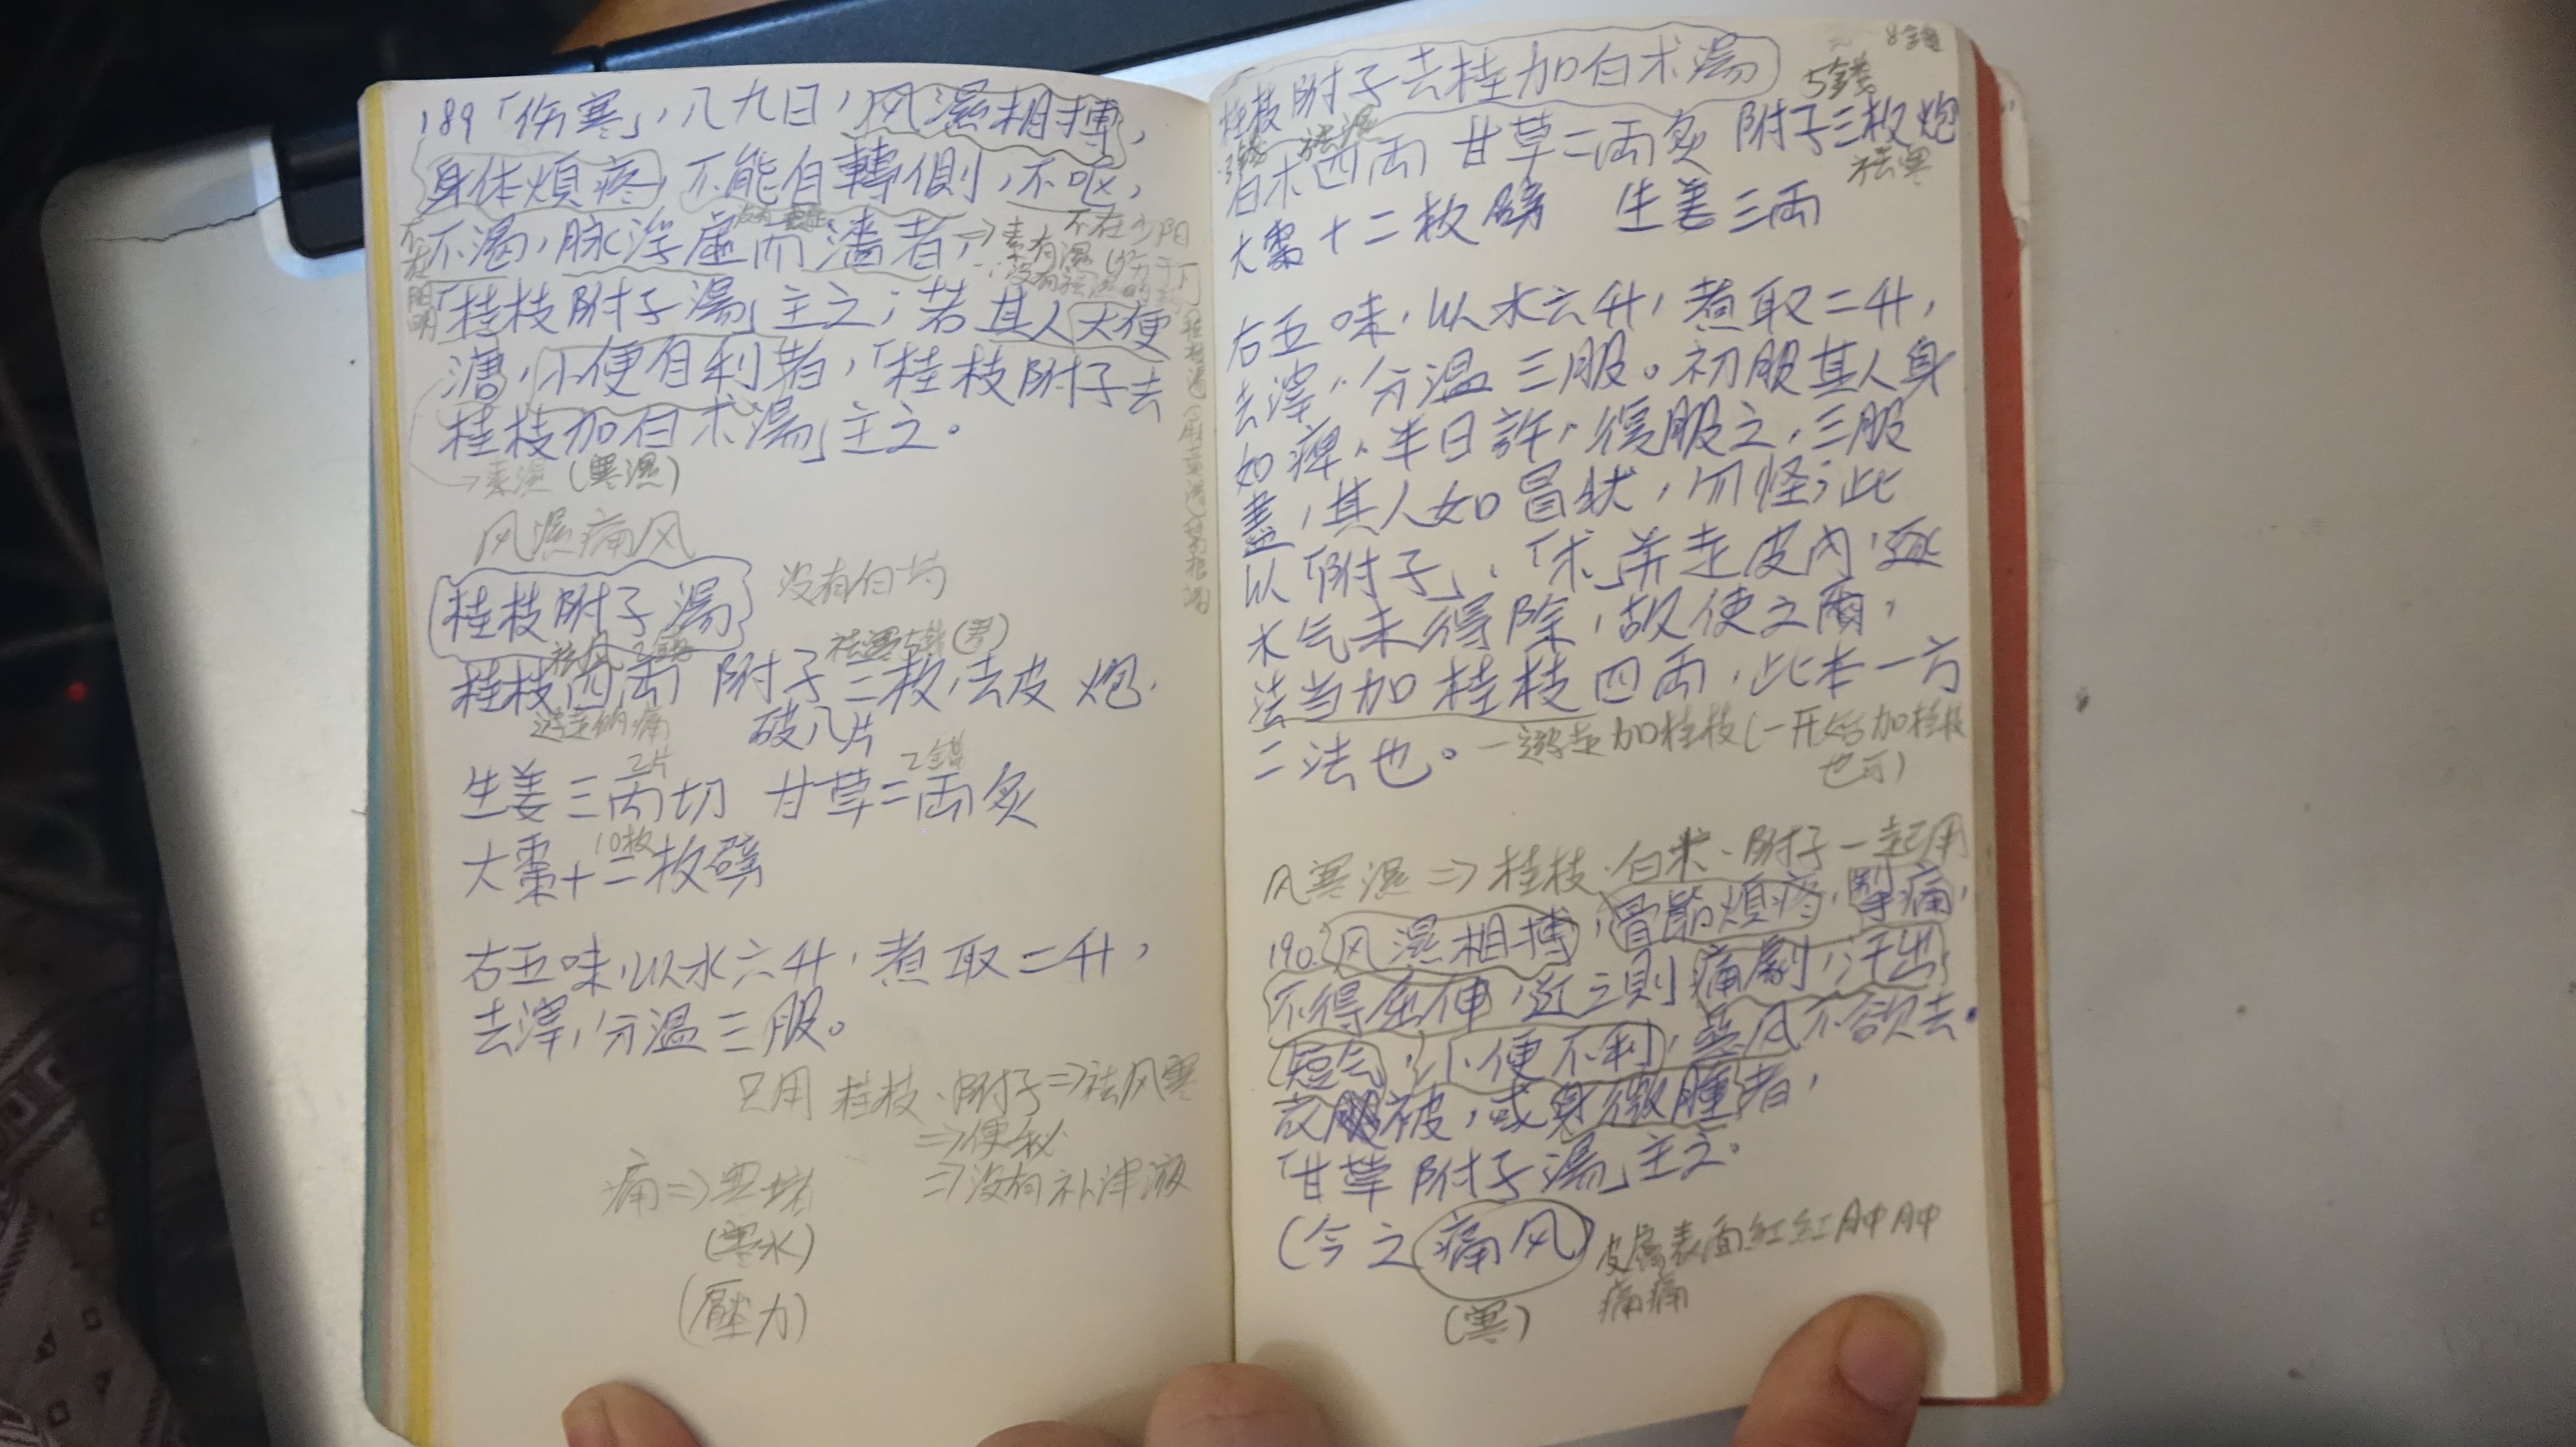 189「伤寒」,八九日,风濕相搏,
身体煩疼,不能自轉側,不呕,
不渴,脉浮虛而濇者,
⇒素有濕
不在少阳
不在阳明
「桂枝附子湯」主之;若其人大便
溏,小便自利者,「桂枝附子去
桂枝加白朮湯」主之。
→素濕(寒濕)
风濕痛风
桂枝附子湯
没有白芍
祛风2錢
祛寒5錢(君)
桂枝四両 附子三枚,去皮 炮.
破八片
遊走的痛
2片
2錢
生姜三両切 甘草二両炙
10枚
大棗十二枚劈
右五味,以水六升,煮取二升,
去滓,分温三服。
只用 桂枝、附子⇒祛风寒
⇒便秘
⇒没有补津液
痛⇒里堵
(寒水)
(壓力)
8錢
桂枝附子去桂加白朮湯
5錢
祛濕
白朮四両 甘草二両炙 附子三枚炮
祛寒
大棗十二枚劈 生姜三両
右五味,以水六升,煮取二升,
去滓,分温三服。初服其人身
如痺,半日許,復服之,三服
盡,其人如冒状,勿怪;此
以「附子」、「朮」并走皮内,逐
水气未得除,故使之爾,
法当加桂枝四両,此本一方
二法也。—遊走加桂枝(一开始加桂枝
也可)
风寒濕⇒桂枝、白朮、附子一起用
190.风濕相搏,骨節煩疼,掣痛,
不得屈伸,近之則痛劇,汗出,
短气,小便不利,惡风不欲去
衣被,或身微腫者,
「甘草附子湯」主之。
(今之痛风)
皮膚表面紅紅肿肿
痛痛
(寒)